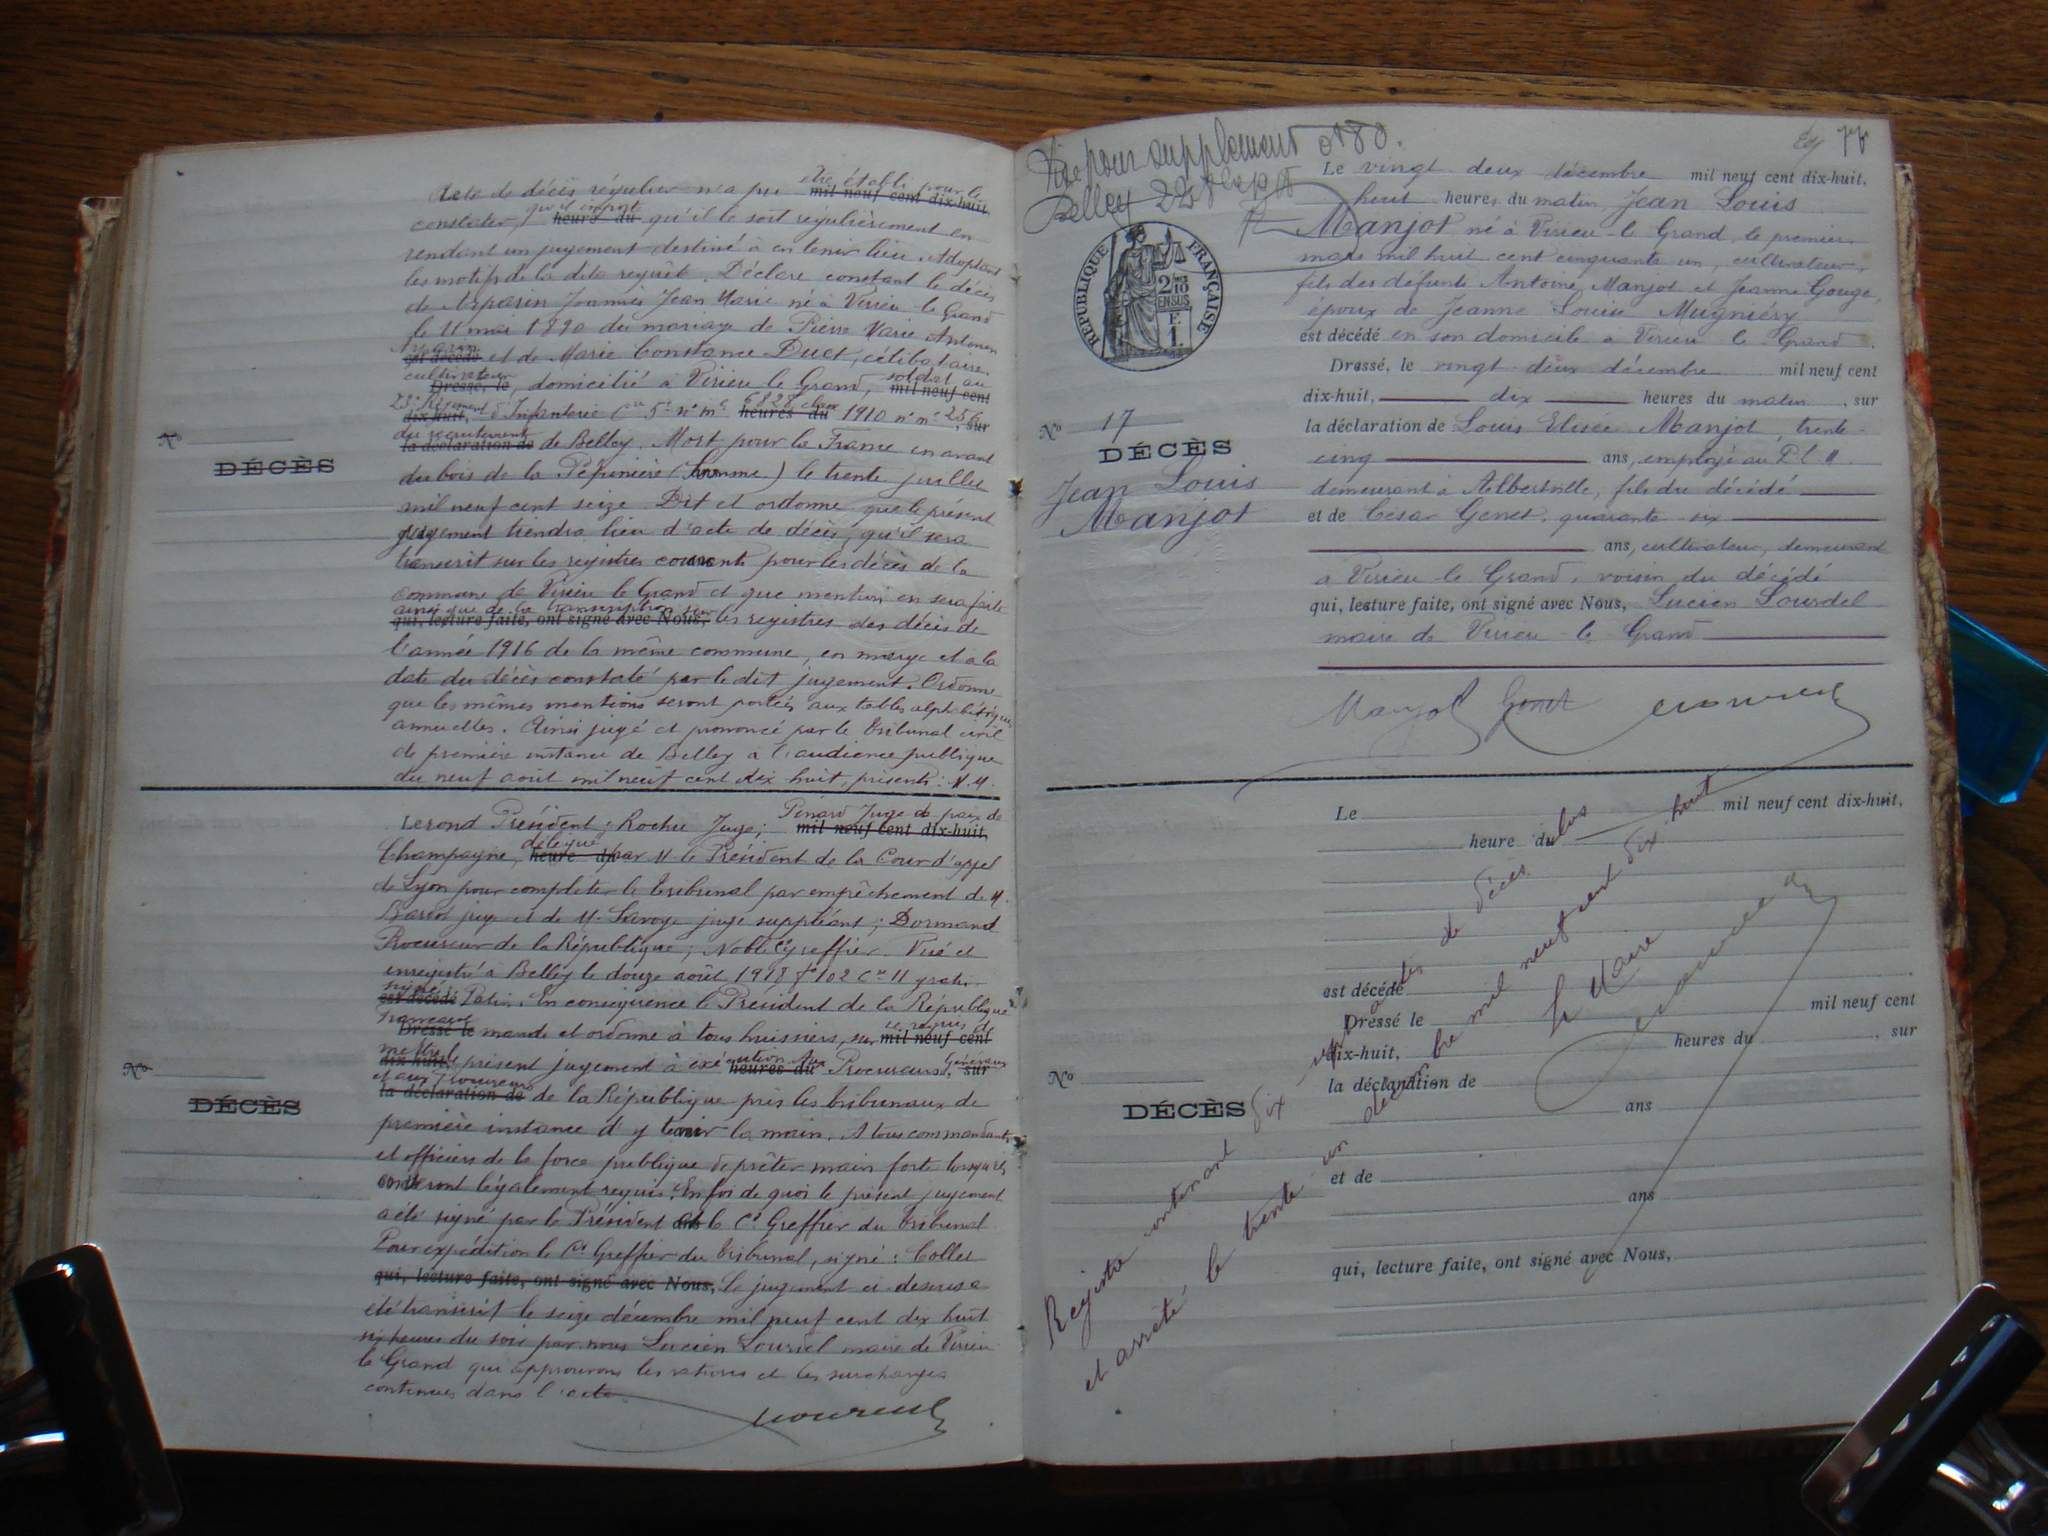 acte de décès régulier n'a pu être établi pour le
mil neuf cent dix-huit,
constater, qu'il importe heure du qu'il le soit regulièrement en
rendant un jugement destiné à en tenir lieu. Adoptant
les motifs de la dite requête. Déclare constant le décès
de Arparin Joannès Jean Marie né à Virieu le Grand
le 11 mai 1890 du mariage de Pierre Marie Antonin
Arparin est décédé et de Marie Constance Duet, célibataire,
cultivateur Dressé, le domicilié à Virieu le Grand, soldat au mil neuf cent
23e Régiment dix-huit, d'Infanterie Cie 5e no mle 6828 classe heures du 1910 no mle 256 , sur
du recrutement la déclaration de de Belley. Mort pour la France en avant
No
DÉCÈS
du bois de la Pépinière (Somme) le trente juillet
mil neuf cent seize Dit et ordonne que le présent
jugement tiendra lieu d'acte de décès, qu'il sera
transcrit sur les registres courants pour les décès de la
commune de Virieu le Grand et que mention en sera faite
ainsi que de la transcription sur
qui, lecture faite, ont signé avec Nous, les registres des décès de
l'année 1916 de la même commune, en marge et à la
date du décès constaté par le dit jugement. Ordonne
que les mêmes mentions seront portées aux tables alphabétiques
annuelles. Ainsi jugé et prononcé par le tribunal civil
de première instance de Belley à l'audience publique
du neuf août mil neuf cent dix huit, présents : M.M.
Lerond Président ; Rochu Juge ; Pinard Juge de paix de
mil neuf cent dix-huit,
Champagne, délégué heure du par M le Président de la Cour d'appel
de Lyon pour completer le tribunal par empêchement de M.
Baron juge et de M. Savoye juge suppléant ; Dormand
Procureur de la République ; Noblet Greffier. Visé et
enregistré à Belley le douze août 1918 fo 102 Ce 11 gratis
signé est décédé Patin. En conséquence le Président de la République
française Dressé le mande et ordonne à tous huissiers, sur ce requis de mil neuf cent
mettre le dix-huit, présent jugement à exécution Aux heures du Procureurs Généraux , sur
et aux Procureurs la déclaration de de la République près les tribunaux de
No
DÉCÈS
première instance d'y tenir la main. A tous commandants
et officiers de la force publique de prêter main forte lorsqu'ils
en seront légalement requis. En foi de quoi le présent jugement
a été signé par le Président et le Cs Greffier du tribunal
Pour expédition le Cs Greffier du tribunal, signé : Collet
qui, lecture faite, ont signé avec Nous, Le jugement ci-dessus a
été transcrit le seize décembre mil neuf cent dix huit
six heures du soir par nous Lucien Lourdel maire de Virieu
le Grand qui approuvons les ratures et les surcharges
contenues dans l'acte
Vise pour supplement 0f80.
Belley 28
77
RÉPUBLIQUE FRANÇAISE
2/10 EN SUS
F. 1.
Le vingt deux décembre mil neuf cent dix-huit,
huit heures du matin Jean Louis
Manjot né à Virieu-le Grand, le premier
mars mil huit cent cinquante un, cultivateur,
fils des défunts Antoine Manjot et Jeanne Gouge,
époux de Jeanne Louise Mugniéry
est décédé en son domicile à Virieu le Grand
Dressé, le vingt deux décembre mil neuf cent
dix-huit, dix heures du matin , sur
No 17
DÉCÈS
Jean Louis
Manjot
la déclaration de Louis Elisée Manjot, trente-
cinq ans, employé au P.L.M.
demeurant à Albertville, fils du décédé
et de César Genet, quarante six
ans, cultivateur, demeurant
à Virieu-le Grand, voisin du décédé
qui, lecture faite, ont signé avec Nous, Lucien Lourdel
maire de Virieu-le-Grand
Manjot Genet
Le mil neuf cent dix-huit,
heure du
est décédé
Dressé le mil neuf cent
dix-huit, heures du , sur
No
DÉCÈS
la déclaration de
ans
et de
ans
qui, lecture faite, ont signé avec Nous,
Registre contenant dix-sept actes de décès clos
et arrêté le trente un décembre mil neuf cent dix huit
Le Maire